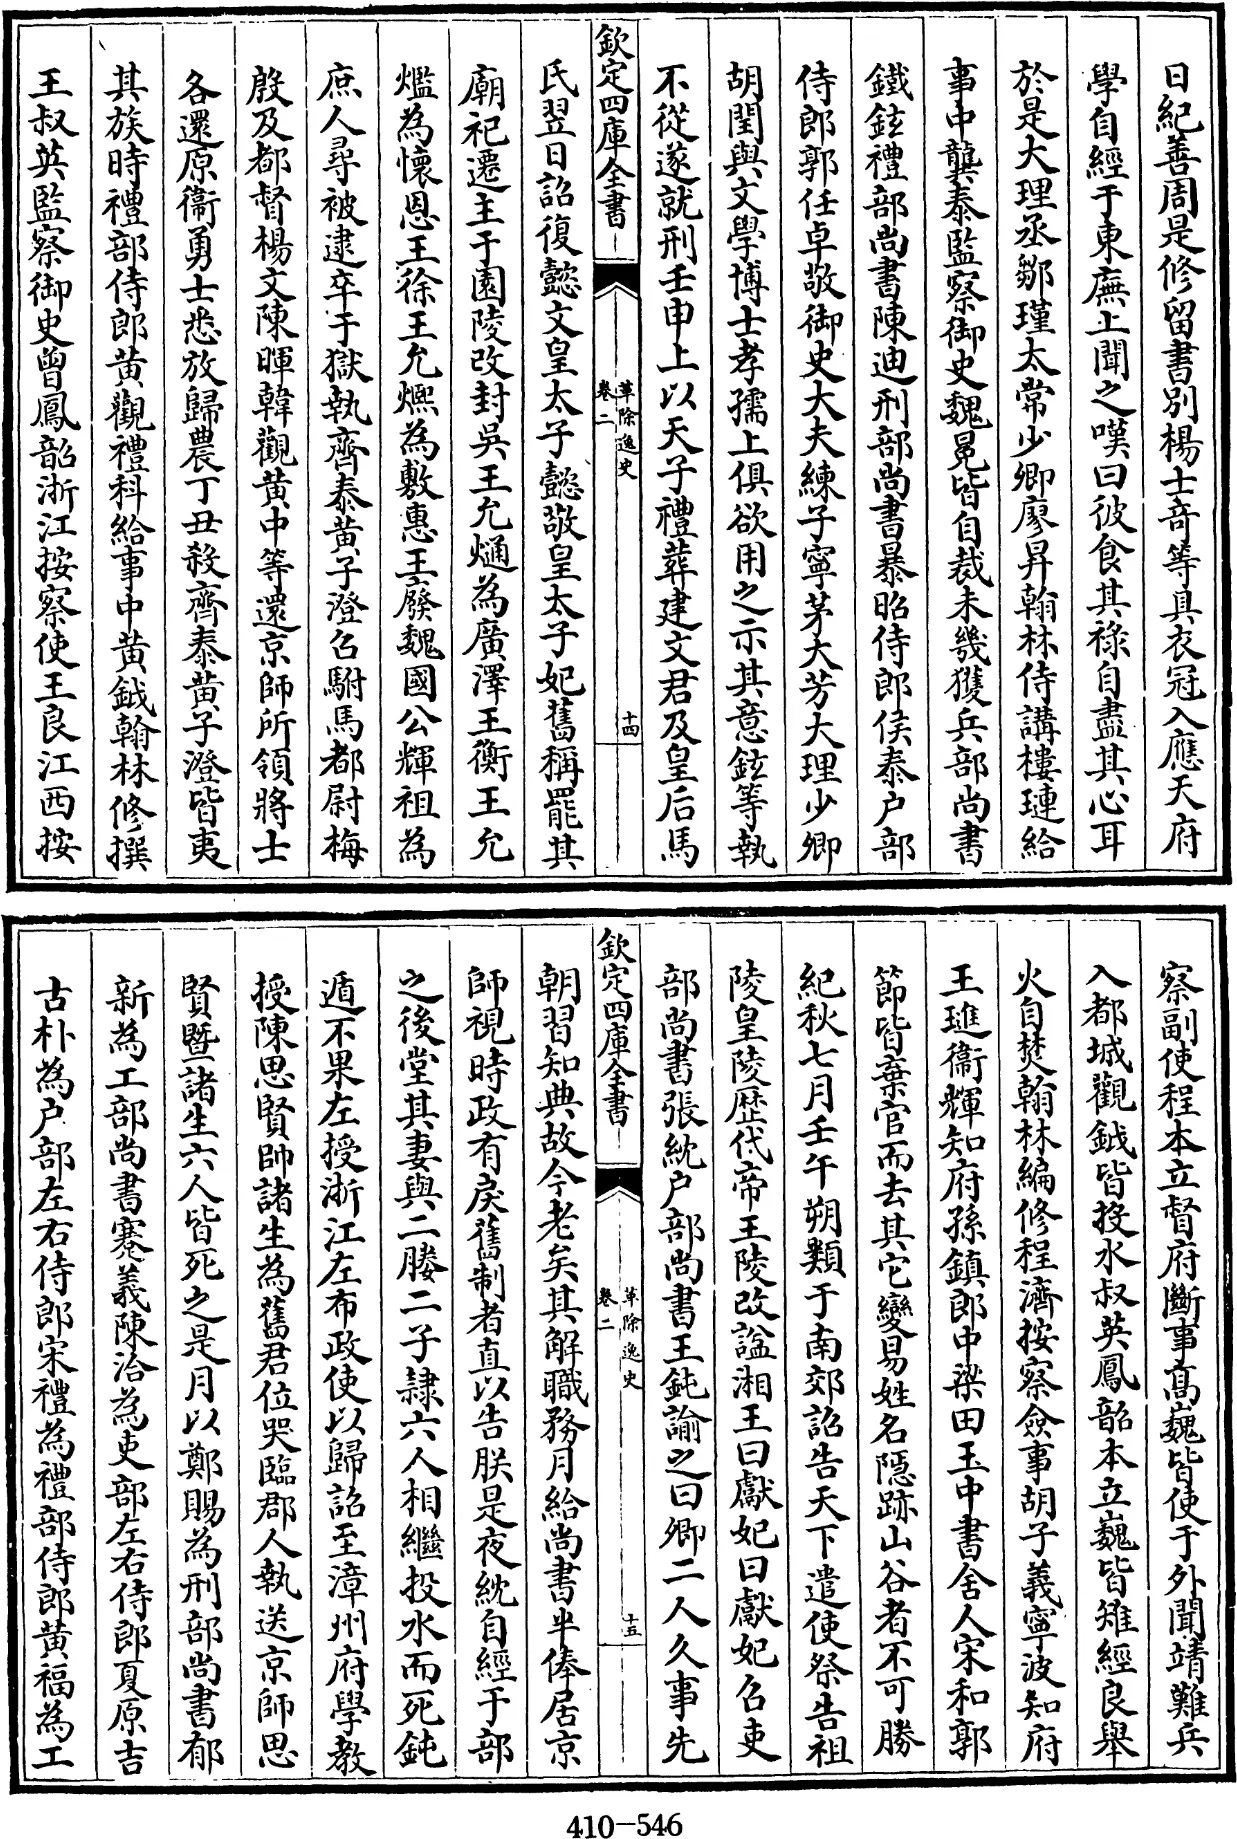 日紀善周是修留書別楊士奇等具衣冠入應天府
學自經于東廡上聞之嘆曰彼食其祿自盡其心耳
於是大理丞鄒瑾太常少卿廖昇翰林侍講樓璉給
事中龔泰監察御史魏冕皆自裁未幾獲兵部尚書
鐵鉉禮部尚書陳迪刑部尚書暴昭侍郎侯泰户部
侍郎郭任卓敬御史大夫練子寧茅大芳大理少卿
胡閏與文學博士孝孺上俱欲用之示其意鉉等執
不從遂就刑壬申上以天子禮葬建文君及皇后馬
欽定四庫全書
革除逸史
卷二
十四
氏翌日詔復懿文皇太子懿敬皇太子妃舊稱罷其
廟祀遷主于園陵改封吳王允熥為廣澤王衡王允
爁為懷恩王徐王允𤐤為敷惠王廢魏國公輝祖為
庶人尋被逮卒于獄執齊泰黄子澄召駙馬都尉梅
殷及都督楊文陳暉韓觀黄中等還京師所領將士
各還原衞勇士悉放歸農丁丑殺齊泰黄子澄皆夷
其族時禮部侍郎黄觀禮科給事中黄鉞翰林修撰
王叔英監察御史曾鳳韶浙江按察使王良江西按
察副使程本立督府斷事髙巍皆使于外聞靖難兵
入都城觀鉞皆投水叔英鳳韶本立巍皆雉經良舉
火自焚翰林編修程濟按察僉事胡子義寧波知府
王璡衞輝知府孫鎮郎中梁田玉中書舍人宋和郭
節皆棄官而去其它變易姓名隠跡山谷者不可勝
紀秋七月壬午朔類于南郊詔告天下遣使祭告祖
陵皇陵歴代帝王陵改諡湘王曰獻妃曰獻妃召吏
部尚書張紞户部尚書王鈍諭之曰卿二人久事先
欽定四庫全書
革除逸史
卷二
十五
朝習知典故今老矣其解職務月給尚書半俸居京
師視時政有戾舊制者直以告朕是夜紞自經于部
之後堂其妻與二媵二子隷六人相繼投水而死鈍
遁不果左授浙江左布政使以歸詔至漳州府學教
授陳思賢帥諸生為舊君位哭臨郡人執送京師思
賢暨諸生六人皆死之是月以鄭賜為刑部尚書郁
新為工部尚書蹇義陳洽為吏部左右侍郎夏原吉
古朴為户部左右侍郎宋禮為禮部侍郎黄福為工
410-546